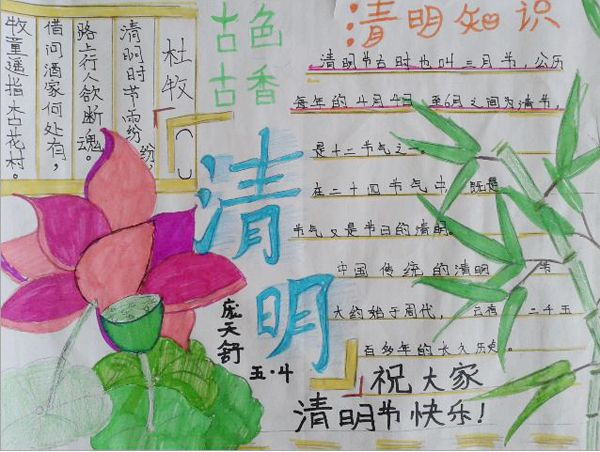 杜牧
清明时节雨纷纷,
路上行人欲断魂。
借问酒家何处有,
牧童遥指杏花村。
古色
古香
清明
五·4
清明知识
清明节古时也叫三月节,公历
每年的4月4日 至6日之间为清明节,
是十二节气之一。
在二十四节气中 既是
节气又是节日的清明。
中国传统的清明 节
大约始于周代, 已有 二千五
百多年的长久历史。
祝大家
清明节快乐!